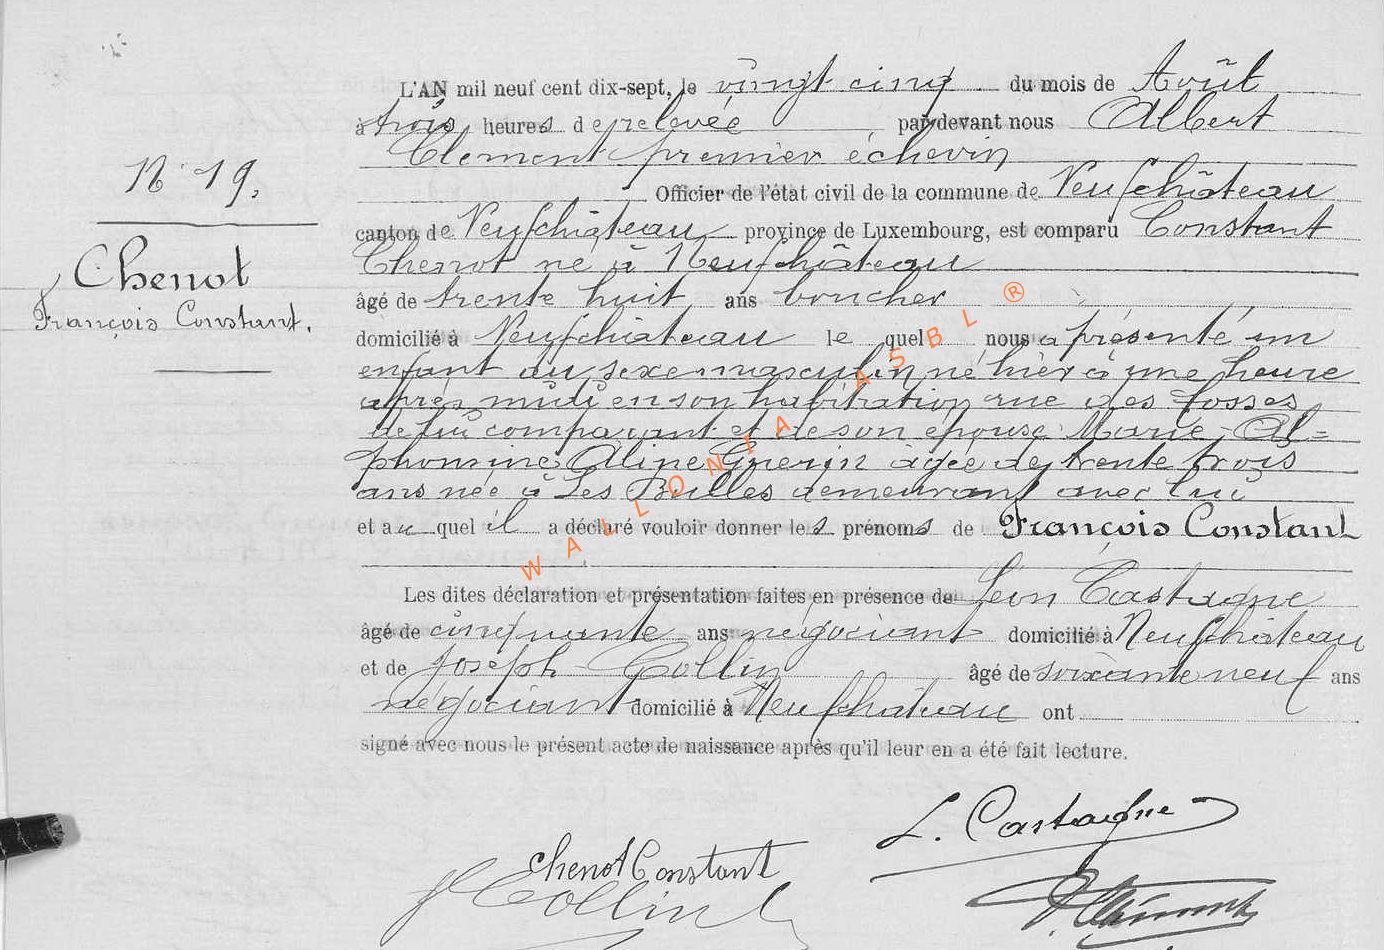 L'AN mil neuf cent dix-sept, le vingt cinq du mois de Août
à trois heures de relevée par devant nous Albert
Clement premier échevin
N° 19.
Officier de l'état civil de la commune de Neufchâteau
canton de Neufchâteau province de Luxembourg, est comparu Constant
Chenot né à Neufchâteau
Chenot
François Constant.
âgé de trente huit ans boucher
domicilié à Neufchâteau le quel nous a présenté un
enfant du sexe masculin né hier à une heure
après midi en son habitation rue des fosses
de lui comparant et de son épouse Marie-Al=
phonsine Aline Guerin agée de trente trois
ans née à Les Bulles demeurant avec lui
et au quel il a déclaré vouloir donner les prénoms de François Constant
Les dites déclaration et présentation faites en présence de Léon Castagne
âgé de cinquante ans négociant domicilié à Neufchâteau
et de Joseph Collin âgé de soixante neuf ans
négociant domicilié à Neufchâteau ont
signé avec nous le présent acte de naissance après qu'il leur en a été fait lecture.
L. Castaigne
Chenot Constant
J Collin
WALLONIA ASBL ®